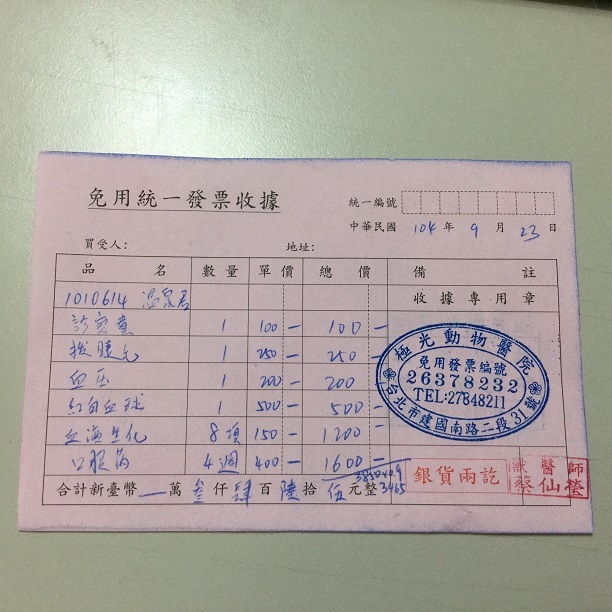 免用統一發票收據
統一編號
中華民國 104 年 9 月 23 日
買受人: 地址:
品名 數量 單價 總價 備註
1010614 溫泉君 收據專用章
診察費 1 100- 100-
1 250- 250-
血压 1 200- 200
紅白血球 1 500- 500-
血液生化 8項 150- 1200-
口服葯 4週 400- 1600-
3850x0.9
3465
合計新臺幣 — 萬 叁 仟 肆 百 陸 拾 伍 元整
極光動物醫院
免用發票編號
26378232
TEL:27848211
台北市建國南路二段31號
銀貨兩訖
獸醫師
蔡仙瑩